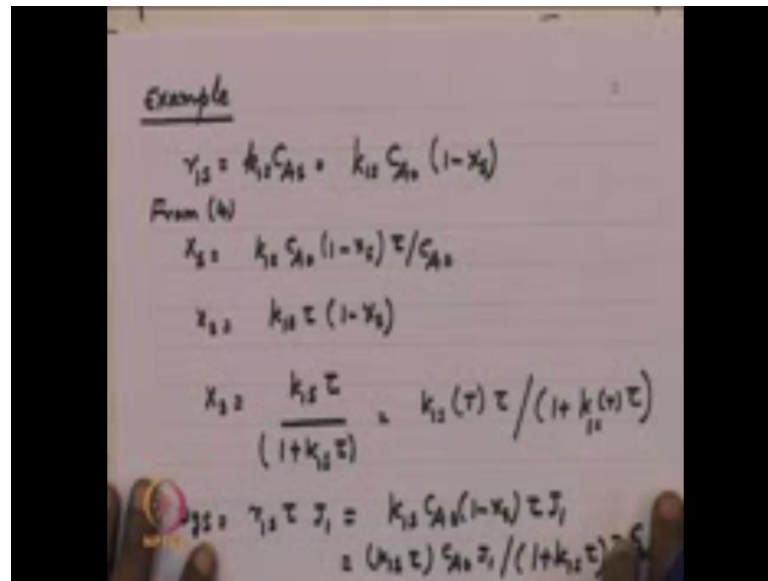 Example
r₁s = k₁s C_As = k₁s C_A0 (1-x_s)
From (4)
x_s = k₁s C_A0 (1-x_s) τ/C_A0
x_s = k₁s τ (1-x_s)
x_s = k₁s τ / (1+k₁s τ) = k₁s (T) τ / (1+ k₁s (T) τ)
gs = r₁s τ J₁ = k₁s C_A0 (1-x_s) τ J₁
= (k₁s τ) C_A0 J₁ / (1+k₁s τ) =
NPTEL